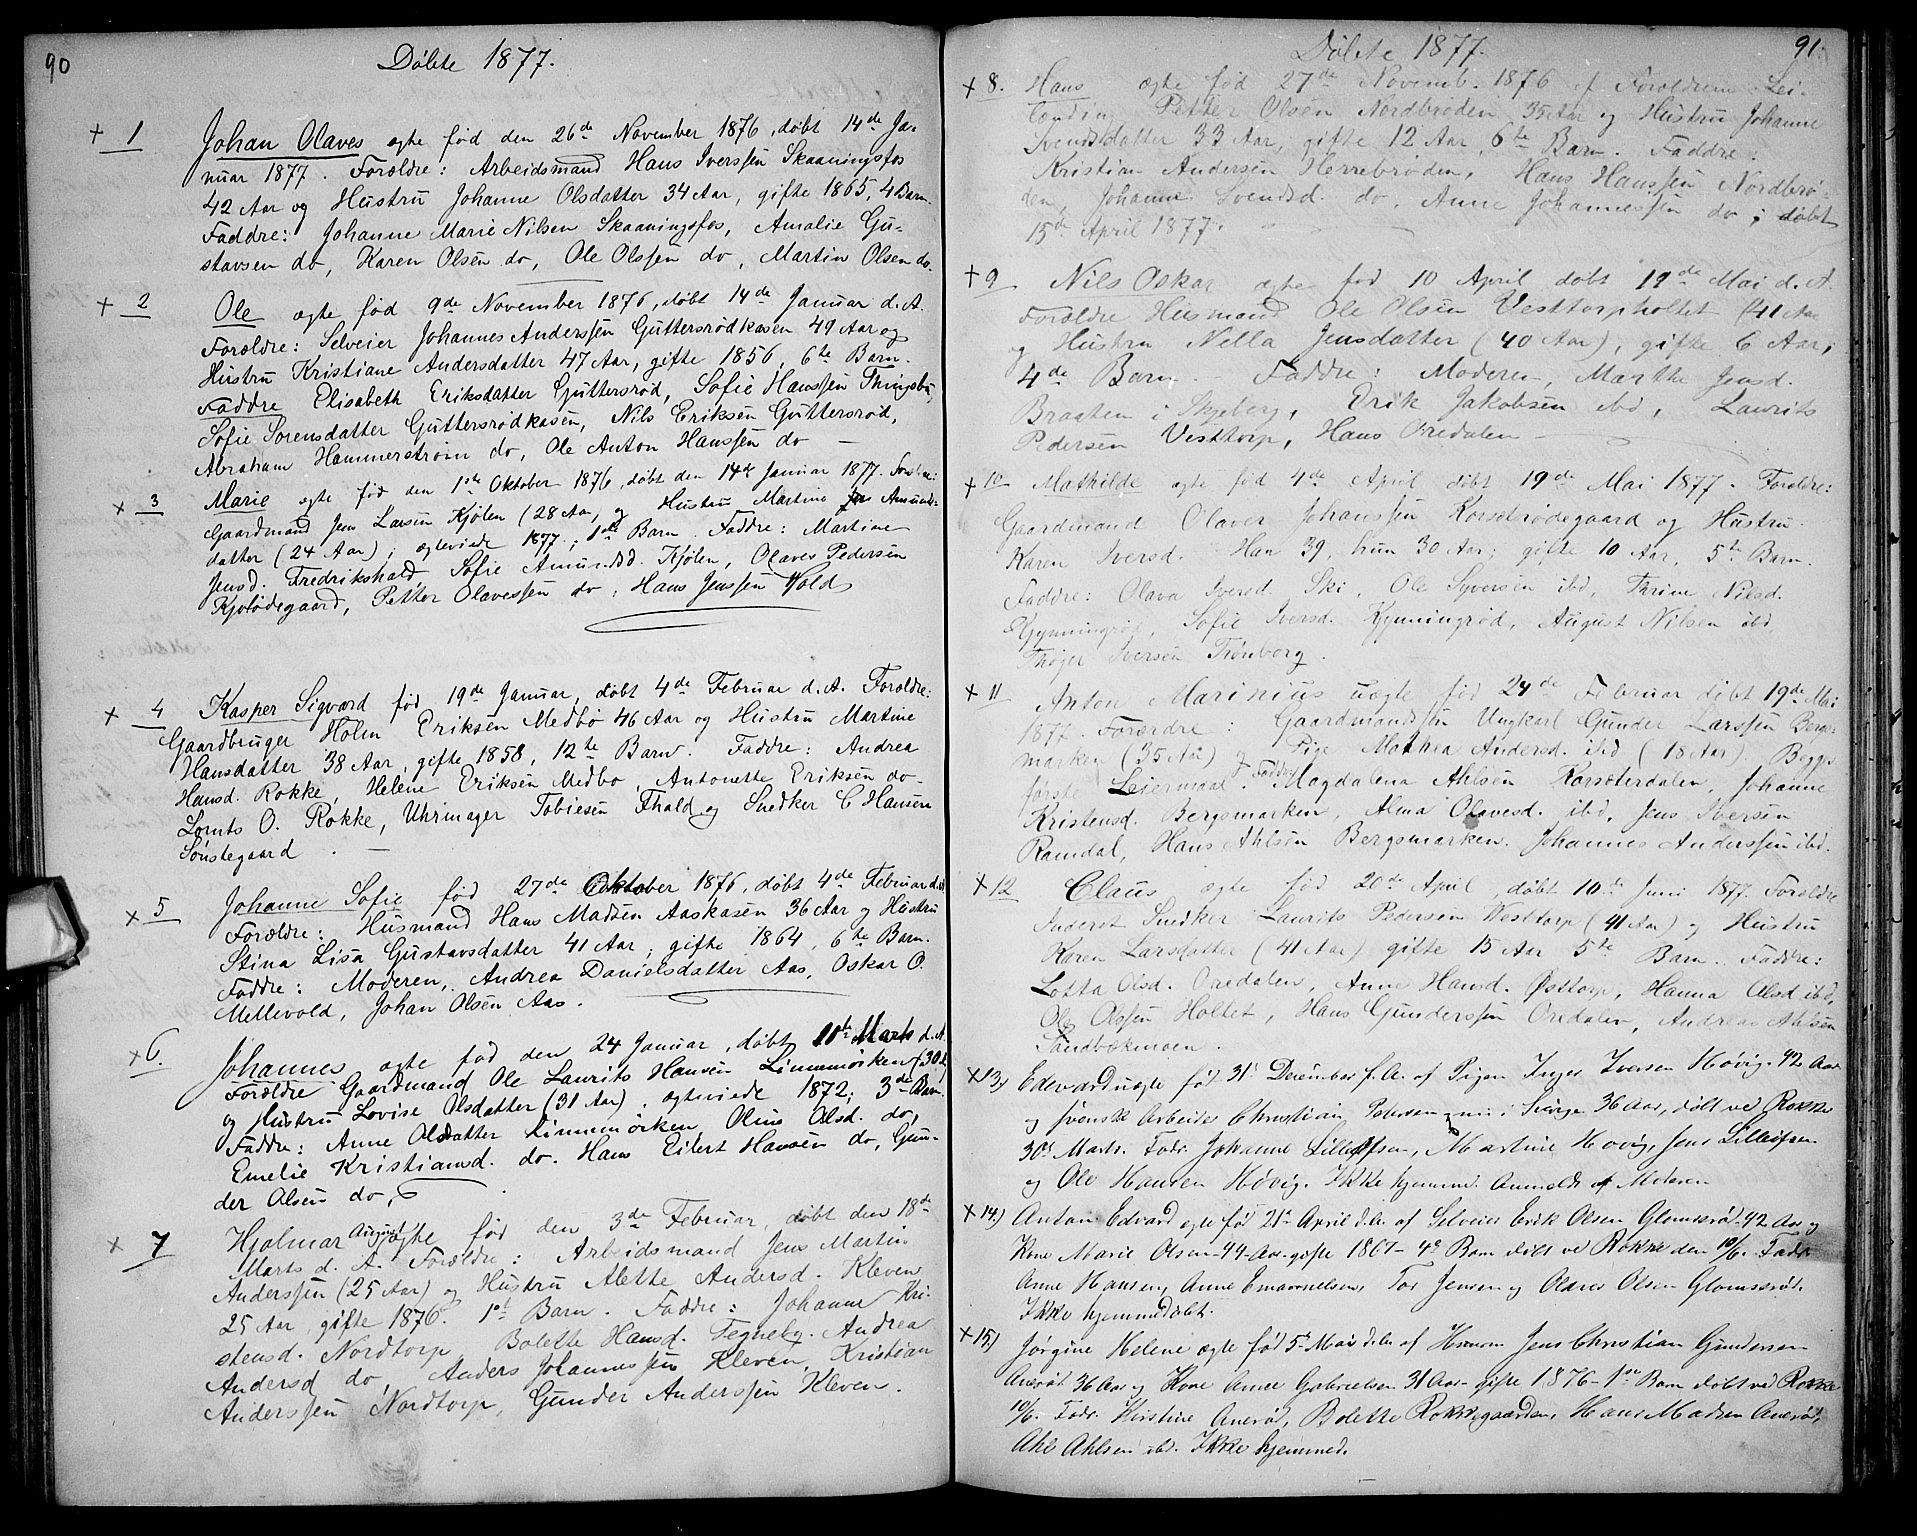 90
Døbte 1877.
+ 1 Johan Olaves ægte fød den 26de November 1876, døbt 14de Ja-
nuar 1877. Forældre: Arbeidsmand Hans Iversen Skaaningsfos
42 Aar og Hustru Johanne Olsdatter 34 Aar, gifte 1865, 4 Barn.
Faddre: Johanne Marie Nilsen Skaaningsfos, Amalie Gu-
stavsen do, Karen Olsen do, Ole Olssen do, Martin Olsen do.
+ 2 Ole ægte fød 9de November 1876, døbt 14de Januar d.A.
Forældre: Selveier Johannes Anderssen Guttersrødkasen 49 Aar og
Hustru Kristiane Andersdatter 47 Aar, gifte 1856, 6te Barn.
Faddre Elisabeth Eriksdatter Guttersrød, Sofie Hanssen Thingsby,
Sofie Sorensdatter Guttersrødkasen, Nils Eriksen Guttersrød,
Abraham Hammerstrøm do, Ole Anton Hanssen do —
+ 3 Marie ægte fød den 1ste Oktober 1876, døbt den 14de Januar 1877. Forældre:
Gaardmand Jens Larsen Kjølen (28 Aar, og Hustru Martine Amunds-
datter (24 Aar); ægteviede 1877; 1ste Barn. Faddre: Martine
Jensd. Fredrikshald, Sofie Amundsd. Kjølen, Olaves Pedersen
Petter Olavessen do, Hans Jenssen Vold
+ 4 Kasper Sigvard fød 19de Januar, døbt 4de Februar d.A. Forældre:
Gaardbruger Holm Eriksen Medbø 46 Aar og Hustru Martine
Hansdatter 38 Aar, gifte 1858, 12te Barn. Faddre: Andrea
Hansd. Rokke, Helene Eriksen Medbø, Antonette Eriksen do-
Lornts O. Rokke, Uhrmager Tobiesen Fhald og Snedker C Hansen
Sørstegaard . —
+ 5 Johanne Sofie fød 27de Oktober 1876, døbt 4de Februar d.A
Forældre: Husmand Hans Madsen Aaskasen 36 Aar og Hustru
Stina Lisa Gustavsdatter 41 Aar; gifte 1864, 6te Barn.
Faddre: Moderen, Andrea Danielsdatter Aas, Oskar O.
Mellevold, Johan Olsen Aas.
+ 6. Johannes ægte fød den 24 Januar, døbt 11te Marts d.A.
Forældre Gaardmand Ole Laurits Hansen Linnemørken (30 A
og Hustru Lovise Olsdatter (31 Aar), ægteviede 1872; 3de Barn.
Faddre: Anne Olsdatter Linnemørken, Oline Olsd. do,
Emelie Kristiansd. do. Hans Eilert Hansen do, Gun-
der Olsen do,
+ 7 Hjalmar August ægte fød den 3de Februar, døbt den 18de
Marts d. A. Forældre: Arbeidsmand Jens Martin
Anderssen (25 Aar) og Hustru Alette Andersd. Kleven
25 Aar, gifte 1876. 1st Barn. Faddre: Johanne Kri-
stensd. Nordtorp, Bolette Hansd. Tegneby. Andrea
Andersd do, Anders Johannessen Kleven, Kristian
Anderssen Nordtorp, Gunder Anderssen Kleven.
91.
Døbte 1877.
+ 8. Hans ægte fød 27de Novemb. 1876 af Forældrene: Lei-
lænding Petter Olsen Nordbrøden 35 Aar og Hustru Johanne
Svendsdatter 33 Aar, gifte 12 Aar, 6te Barn. Faddre:
Kristian Andersen Herrebrøden, Hans Hanssen Nordbrø-
den, Johanne Svendsd. do, Anne Johannessen do; døbt
15de April 1877.
+ 9 Nils Oskar ægte fød 10 April døbt 19de Mai d.A.
Forældre Husmand Ole Olsen Vesttorpholtet (41 Aar
og Hustru Nella Jensdatter (40 Aar), gifte 6 Aar;
4de Barn. Faddre: Moderen, Marthe Jensd.
Braaten i Skjeberg, Erik Jakobsen ibd, Laurits
Pedersen Vesttorp, Hans Oredalen —
+ 10 Mathilde ægte fød 4de April døbt 19de Mai 1877. Forældre:
Gaardmand Olaves Johanssen Korsebrødegaard og Hustru
Karen Iversd. Han 39, hun 30 Aar; gifte 10 Aar, 5te Barn.
Faddre: Olava Iversd. Ski, Ole Syversen ibd, Thrine Nilsd.
Gynningrød, Sofie Iversd. Kynningrød, August Nilsen ibd,
Thøger Iversen Trønborg.
+ 11 Anton Marinius uægte fød 24de Februar døbt 19de Mai
1877. Forældre: Gaardmandssøn Ungkarl Gunder Larssen Bergs-
marken (35 Aar) og Pige Mathea Andersd. ibd (18 Aar). Begges
første Leiermaal. Faddre: Magdalena Ahlsen Korsæterdalen, Johanne
Kristensd. Bergsmarken, Alma Olavesd. ibd, Jens Iversen
Ramdal, Hans Ahlsen Bergsmarken. Johannes Anderssen ibd.
+ 12 Claus ægte fød 20de April, døbt 10de Juni 1877. Forældre
Inderst Snedker Laurits Pedersen Vesttorp (41 Aar) og Hustru
Karen Larsdatter (41 Aar) gifte 15 Aar 5te Barn. Faddre:
Lotta Olsd. Oredalen, Anne Hansd. Østtorp, Hanna Olsd ibd,
Ole Olssen Holtet, Hans Gunderssen Oredalen, Andreas Ahlsen
Sandbækmoen.
+ 13) Edevard uægte fød 31' December f.A. af Pigen Inger Iversen Høvig 42 Aar
og svensk Arbeider Christian Petersen nu i Sverige 36 Aar, døbt ved Rokke
30d Marts. Fadr. Johanne Lilleofsen, Martine Høvig, Jens Lilleofsen
og Ole Hansen Høvig. Ikke hjemmed. Anmeldt af Moderen
+ 14) Anton Edvard ægte fød 21d April d.A. af Selveier Erik Olsen Glomsrød 42 Aar og
Kone Marie Olsen 44 Aar gifte 1867 – 4d Barn døbt ved Rokke den 10/6. Fadr
Anne Hansen, Anne Emanuelsen, Tor Jensen og Olaves Olsen Glomsrød.
Ikke hjemmedøbt.
+ 15) Jørgine Helene ægte fød 5d Mai d.A. af Husm Jens Christian Gundersen
Anerød 36 Aar og Kone Anne Gabrielsen 31 Aar gifte 1876 – 1ste Barn døbt ved Rokke
10/6. Fadr. Kirstine Anerød, Bolette Rokkegaarden, Hans Madsen Anerød,
Ahl Ahlsen ibd. Ikke hjemmed.